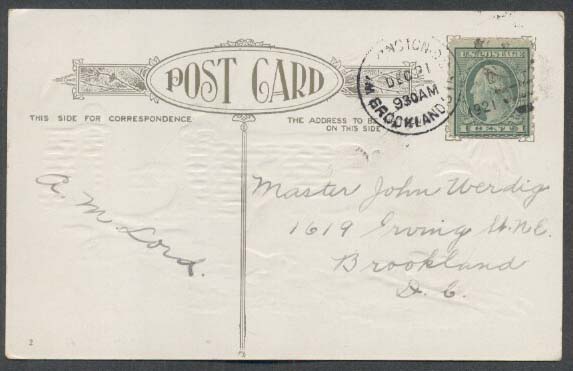 POST CARD
THIS SIDE FOR CORRESPONDENCE.
THE ADDRESS TO BE
ON THIS SIDE
DEC 21
930AM
BROOKLAND
1921
A. M. Lord.
Master John Werdig
1619 Irving St. N.E.
Brookland
D. C.
2